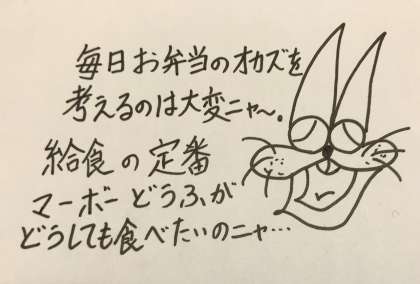 毎日お弁当のオカズを
考えるのは大変ニャ〜。
給食の定番
マーボーどうふが
どうしても食べたいのニャ…